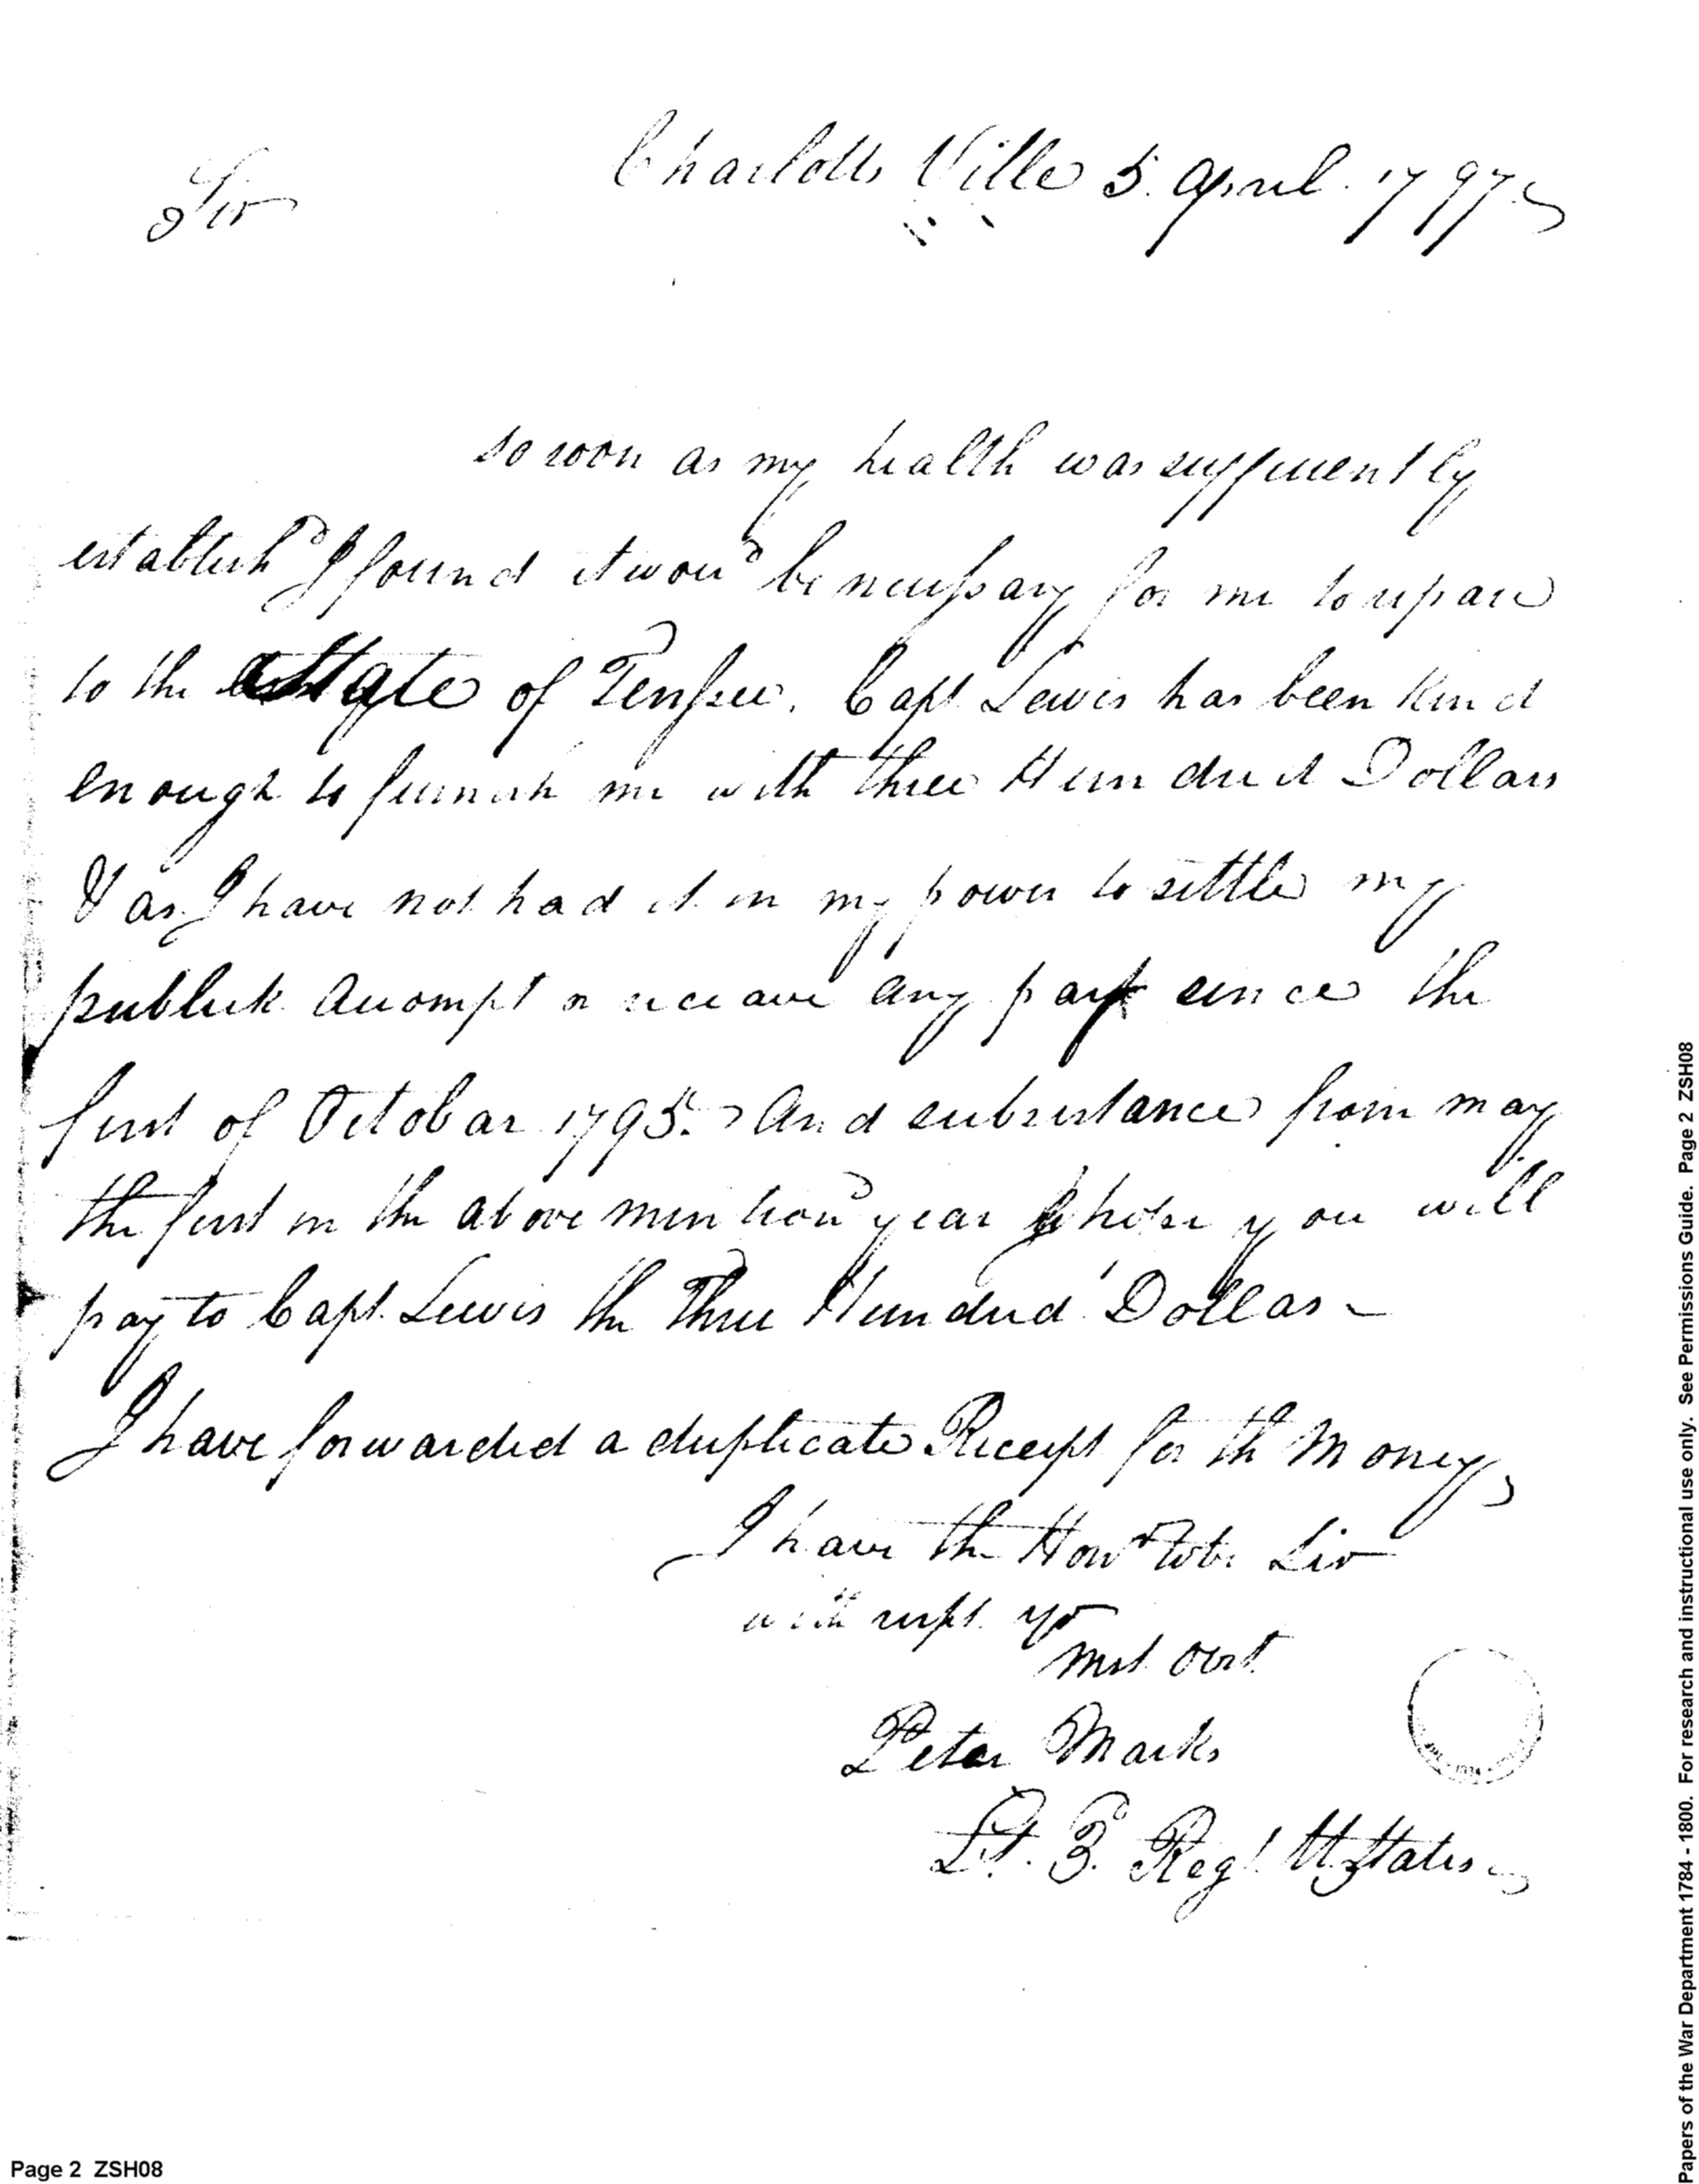 Charlotts Ville 5. April. 1797
Sir
so soon as my health was suffuciently
establishd I found it woud be necessary for me to repare
to the State of Tenssee. Capt Lewis has been kind
enough to furnish me with three Hundred Dollars
& as I have not had it in my power to settle my
publick Accompt or receave any pay since the
first of Octobar 1795. And subsistance from may
the first in the above mentiond year I hope you will
pay to Capt. Lewis the Three Hundred Dollars
I have forwarded a duplicate Receipt for the Money
I have the Honr to be Sir
with respt. yr
Mst Obt.
Petar Marks
Lt. 3. Regt. U. States
Page 2 ZSH08
Papers of the War Department 1784 - 1800. For research and instructional use only. See Permissions Guide. Page 2 ZSH08